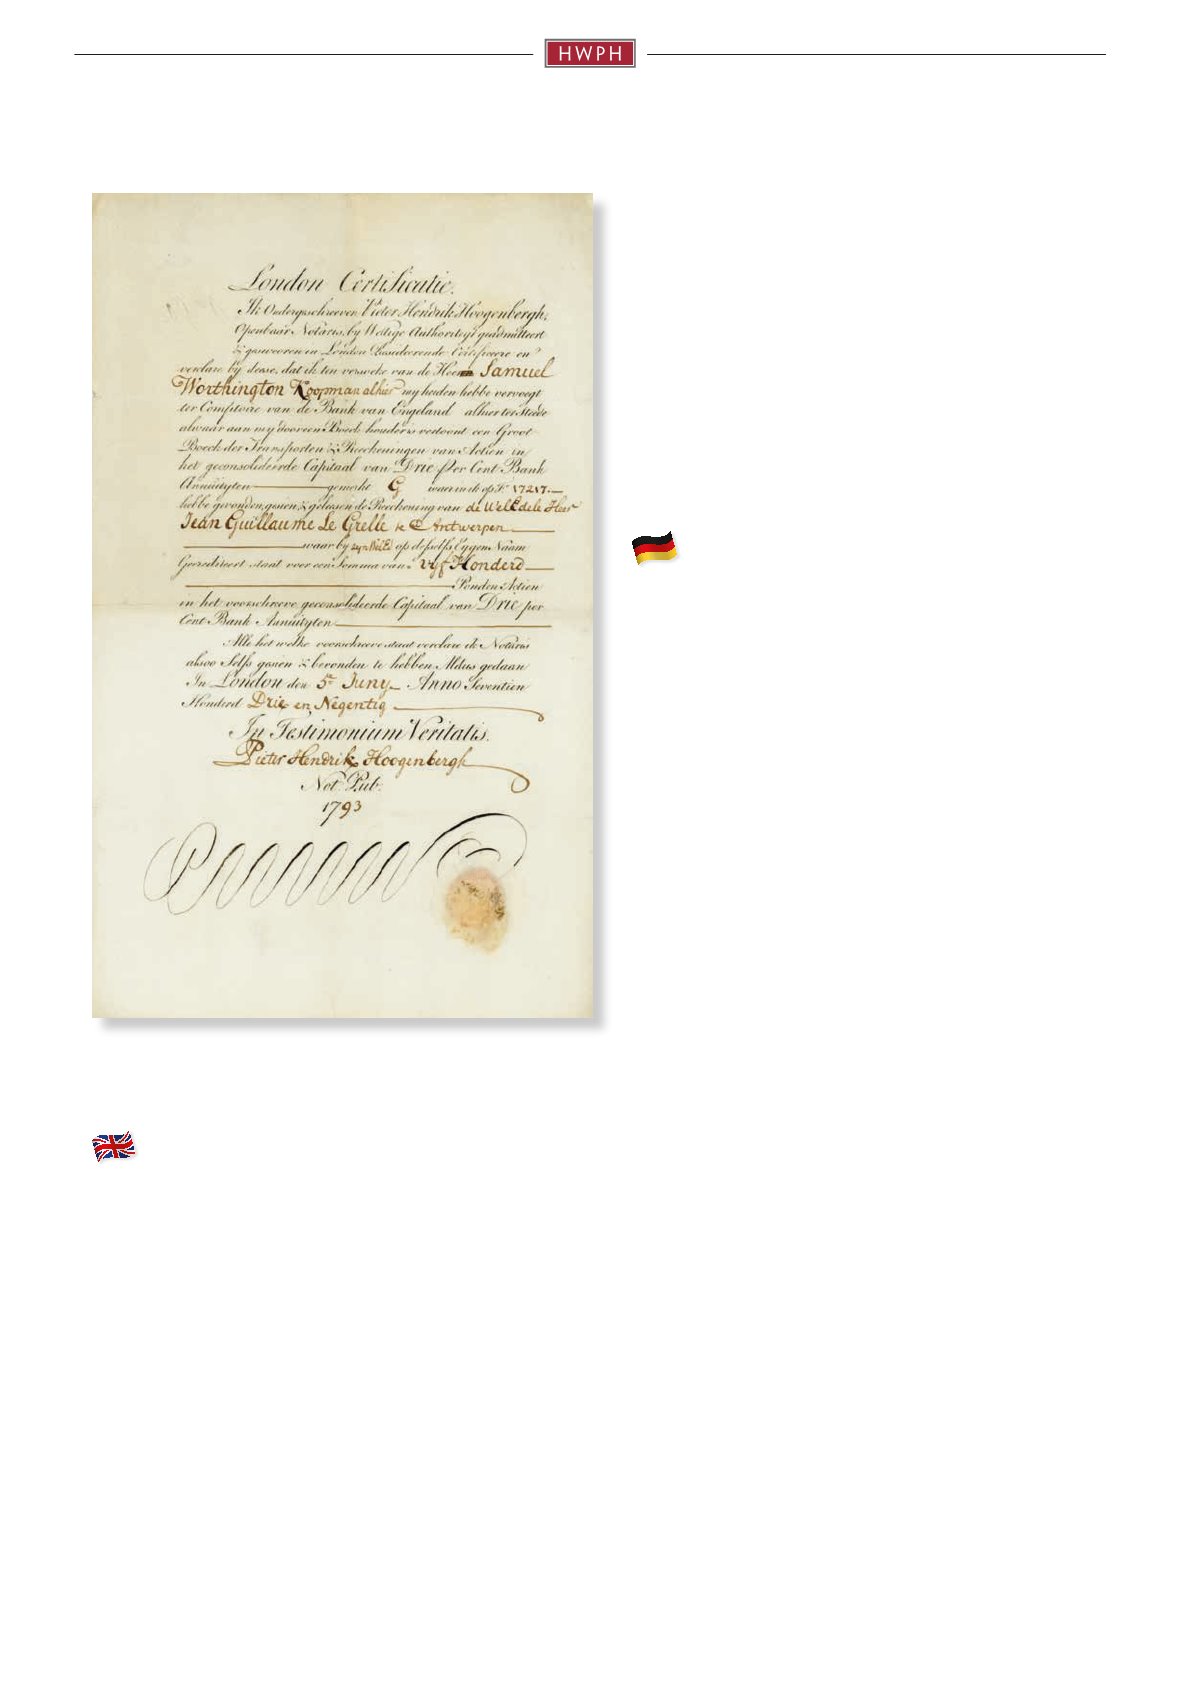 HWPH
London Certificatie.
Ik Ondergeschreeven Pieter Hendrik Hoogenbergh,
Openbaar Notaris, by Wettige Authoriteyt geadmitteert
& geswooren in London Resideerende Certificeere en
verclare by deese, dat ik ten versoeke van de Heer Samuel
Worthington Koopman alhier my heiden hebbe vervoegt
ter Comptoire van de Bank van Engeland alhier ter Steede
alwaar aan my door een Boeck houder is vertoont een Groot
Boeck der Transporten & Reeckeningen van Actien in
het geconsolideerde Capitaal van Drie per Cent Bank
Annuityten gemerkt G waar in ik op Fo. 17217.
hebbe gevonden, gesien, & gelesen de Reeckening van de WelEdele Heer
Jean Guillaume Le Grelle te Antwerpen
waar by zyn WelEd op deselfs Eygen Naam
Gecrediteert staat voor een Somma van Vyf Honderd
Ponden Actien
in het voorschreeve geconsolideerde Capitaal van Drie per
Cent Bank Annuityten
Alle het welke voorschreeve staat verclare ik Notaris
alsoo Selfs gesien & bevonden te hebben Aldus gedaan
In London den 5e Juny Anno Seventien
Honderd Drie en Negentig
In Testimonium Veritatis.
Pieter Hendrik Hoogenbergh
Not. Pub.
1793